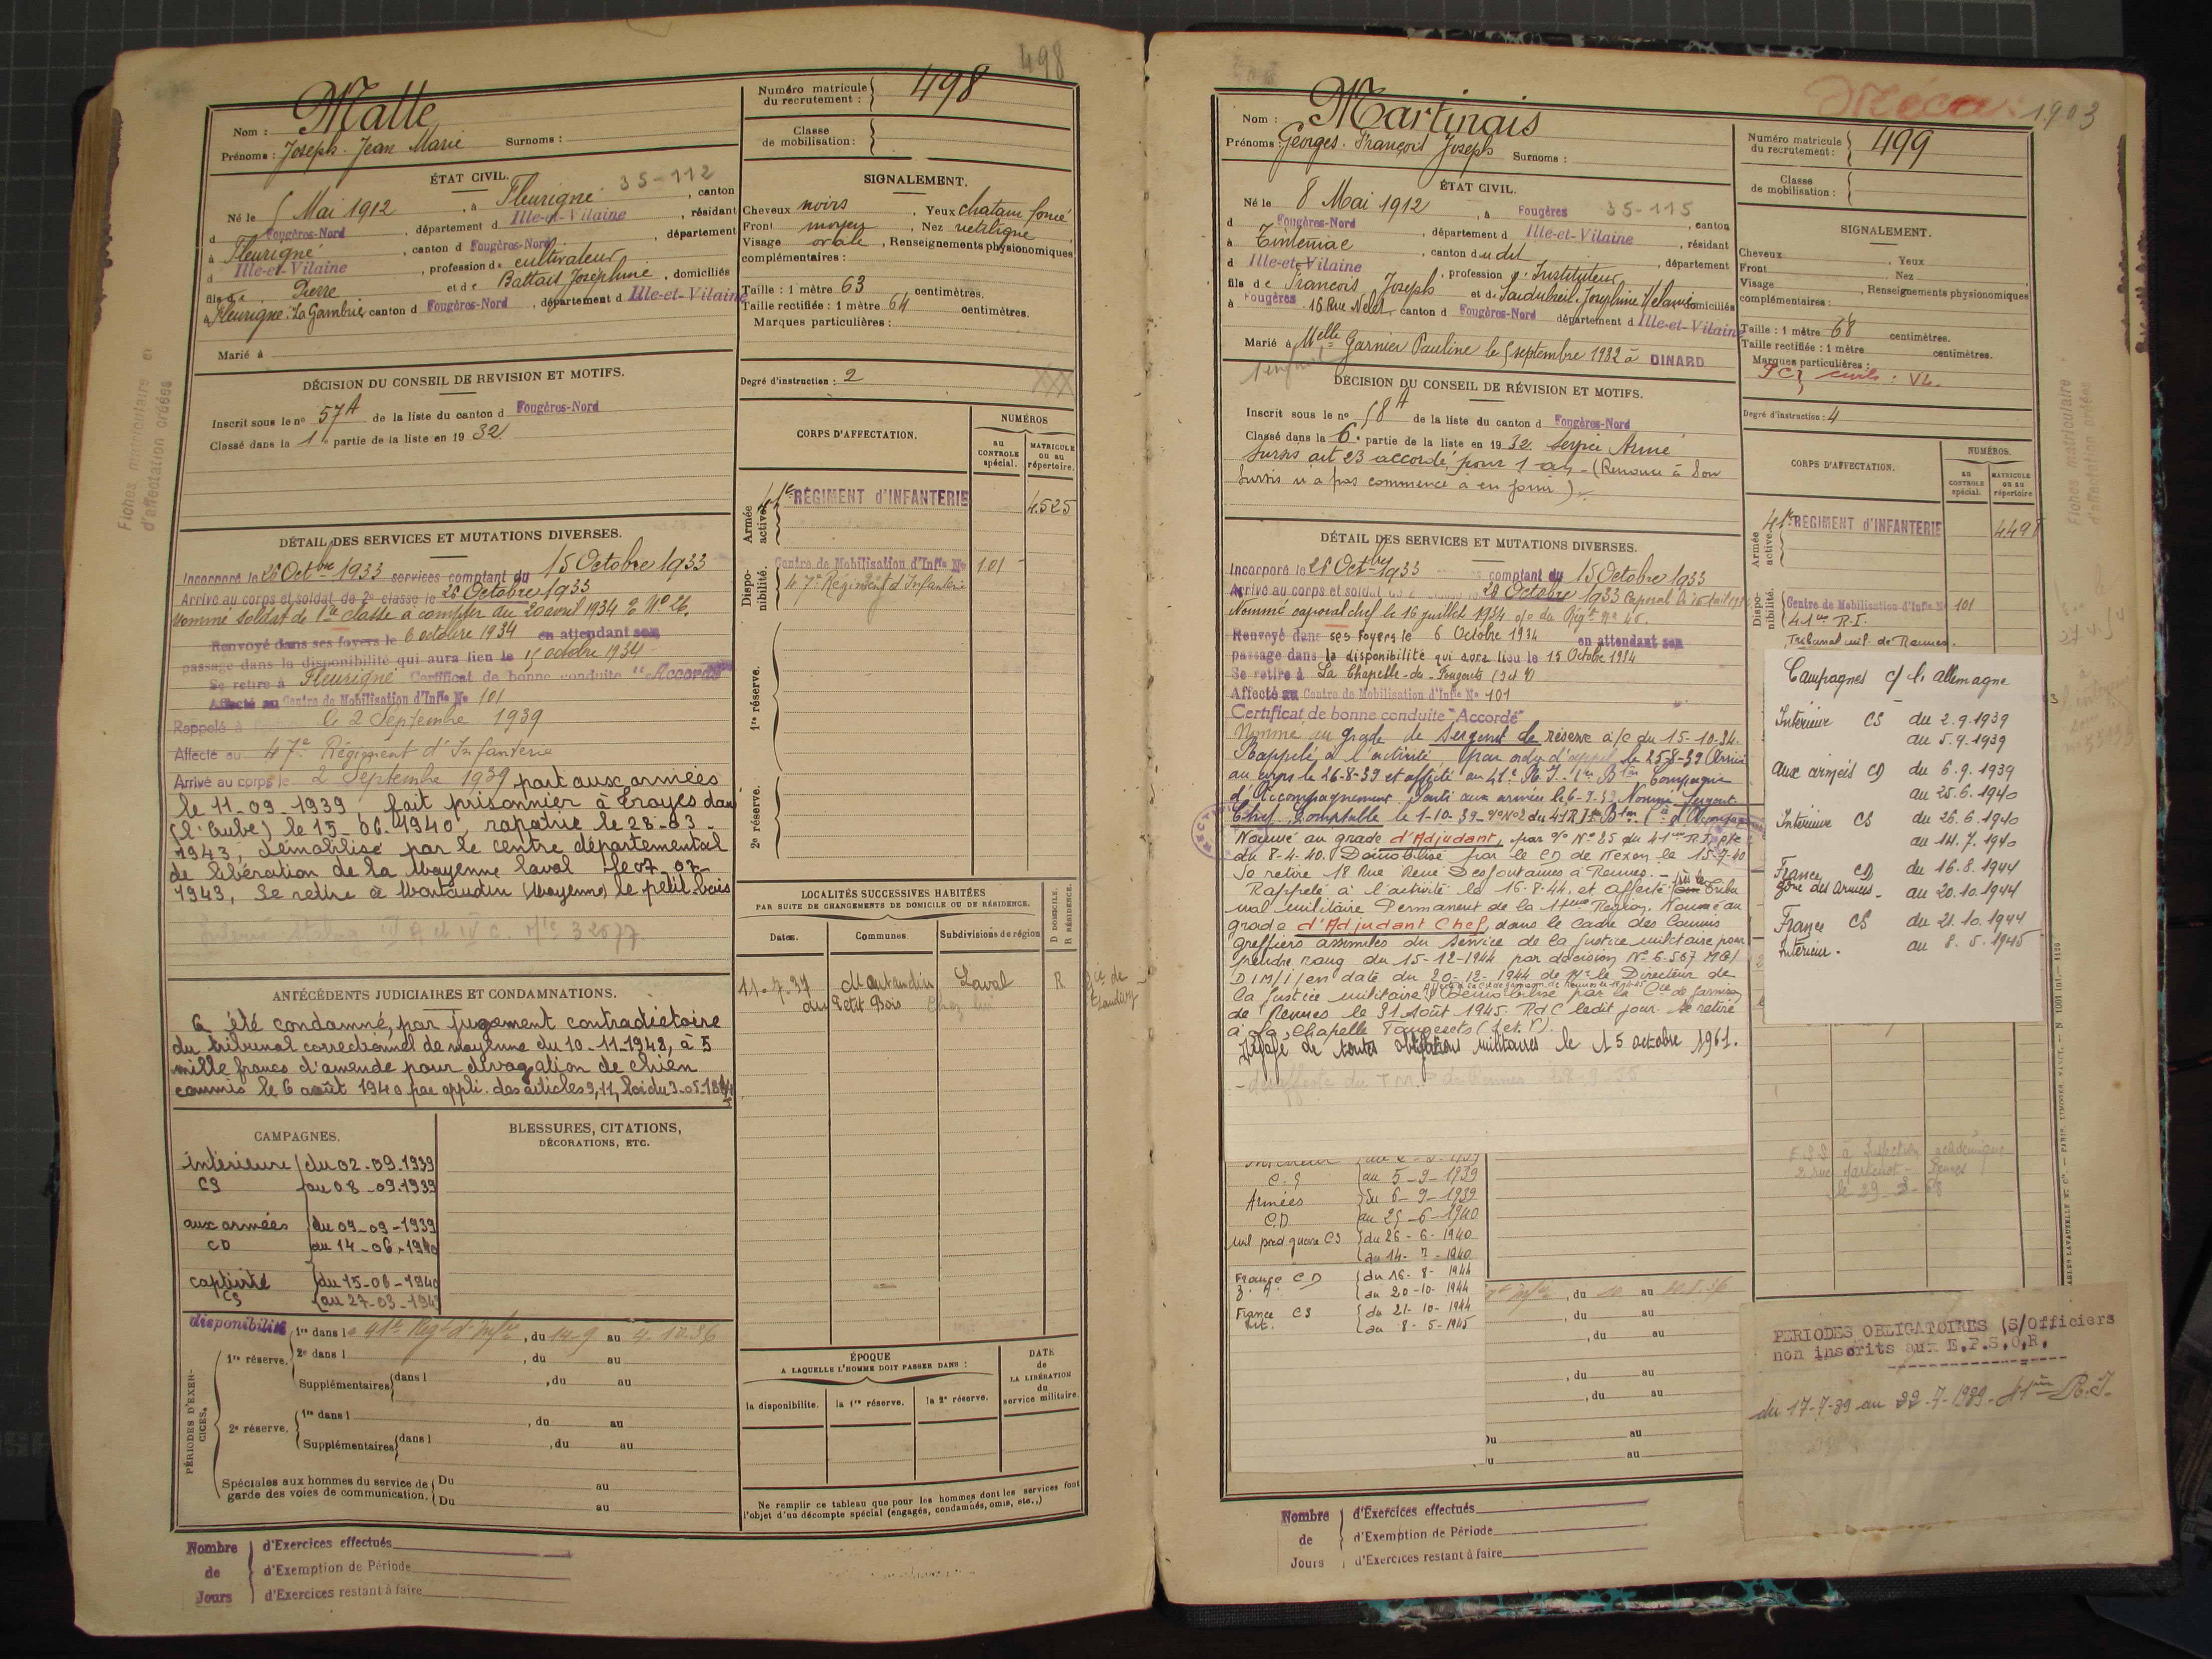 498
Nom : Malle
Prénoms : Joseph Jean Marie Surnoms :
Numéro matricule du recrutement : 498
Classe de mobilisation :
ÉTAT CIVIL.
35-112
Né le 5 Mai 1912, à Fleurigné, canton
d Fougères-Nord, département d Ille-et-Vilaine, résidant
à Fleurigné, canton d Fougères-Nord, département
d Ille-et-Vilaine, profession de cultivateur
fils de Pierre et de Battais Joséphine, domiciliés
à Fleurigné. La Gambrie canton d Fougères-Nord, département d Ille-et-Vilaine
Marié à
SIGNALEMENT.
Cheveux noirs, Yeux chatain foncé
Front moyen, Nez rectiligne
Visage ovale, Renseignements physionomiques
complémentaires :
Taille : 1 mètre 63 centimètres.
Taille rectifiée : 1 mètre 64 centimètres.
Marques particulières :
Degré d'instruction : 2
DÉCISION DU CONSEIL DE REVISION ET MOTIFS.
Inscrit sous le no 57A de la liste du canton d Fougères-Nord
Classé dans la 1re partie de la liste en 1932
DÉTAIL DES SERVICES ET MUTATIONS DIVERSES.
Incorporé le 26 Octbre 1933 services comptant du 15 Octobre 1933
Arrivé au corps et soldat de 2e classe le 26 Octobre 1933
Nommé soldat de 1re classe à compter du 20 avril 1934 O No 26.
Renvoyé dans ses foyers le 6 octobre 1934 en attendant son
passage dans la disponibilité qui aura lieu le 15 octobre 1934
Se retire à Fleurigné Certificat de bonne conduite "Accordé"
Affecté au Centre de Mobilisation d'Infie No 101
Rappelé à le 2 Septembre 1939
Affecté au 47e Régiment d'Infanterie
Arrivé au corps le 2 Septembre 1939 part aux armées
le 11-09-1939 fait prisonnier à Troyes dans
(l'Aube) le 15-06-1940, rapatrié le 28-03-
1943, démobilisé par le centre départemental
de libération de la Mayenne Laval le 07-07-
1943, Se retire à Montaudin (Mayenne) le petit bois
Interné Stalag IV A et IV C. Mle 32677
CORPS D'AFFECTATION.
NUMÉROS
AU CONTROLE spécial.
MATRICULE ou au répertoire.
Armée active.
41e RÉGIMENT d'INFANTERIE 4525
Disponibilité.
Centre de Mobilisation d'Infie No 101
47e Régiment d'Infanterie
1re réserve.
2e réserve.
LOCALITÉS SUCCESSIVES HABITÉES
PAR SUITE DE CHANGEMENTS DE DOMICILE OU DE RÉSIDENCE.
Dates. Communes. Subdivisions de région
D DOMICILE. R RÉSIDENCE.
11-7-37 Montaudin Laval R
du Petit Bois chez lui
ANTÉCÉDENTS JUDICIAIRES ET CONDAMNATIONS.
a été condamné, par jugement contradictoire
du tribunal correctionnel de mayenne du 10-11-1942, à 5
mille francs d'amende pour divagation de chien
commis le 6 août 1940 par appli. des articles 9, 11, loi du 3-05-1844
CAMPAGNES.
intérieure du 02-09-1939
CS au 08-09-1939
aux armées du 09-09-1939
CD au 14-06-1940
captivité du 15-06-1940
CS au 27-03-1943
BLESSURES, CITATIONS,
DÉCORATIONS, ETC.
PÉRIODES D'EXERCICES.
disponibilité
1re dans le 41e Régt d'Infie, du 14-9 au 4-10-36
1re réserve. 2e dans l , du au
Supplémentaires dans l , du au
2e réserve. 1re dans l , du au
Supplémentaires dans l , du au
Spéciales aux hommes du service de Du au
garde des voies de communication. Du au
ÉPOQUE
A LAQUELLE L'HOMME DOIT PASSER DANS :
la disponibilité. la 1re réserve. la 2e réserve.
DATE de LA LIBÉRATION du service militaire.
Ne remplir ce tableau que pour les hommes dont les services font
l'objet d'un décompte spécial (engagés, condamnés, omis, etc.,)
Nombre d'Exercices effectués
de d'Exemption de Période
Jours d'Exercices restant à faire
Fiches matriculaire et
d'affectation créées
1903
Nom : Martinais
Prénoms : Georges François Joseph Surnoms :
Numéro matricule du recrutement : 499
Classe de mobilisation :
ÉTAT CIVIL.
Né le 8 Mai 1912, à Fougères 35-115, canton
d Fougères-Nord, département d Ille-et-Vilaine, résidant
à Tinténiac, canton dudit, département
d Ille-et-Vilaine, profession d'Instituteur
fils de François Joseph et de Joséphine Mélanie domiciliés
à Fougères 16 Rue canton d Fougères-Nord département d Ille-et-Vilaine
Marié à Melle Garnier Pauline le 5 septembre 1932 à DINARD
1 enfant
SIGNALEMENT.
Cheveux, Yeux
Front, Nez
Visage, Renseignements physionomiques
complémentaires :
Taille : 1 mètre 68 centimètres.
Taille rectifiée : 1 mètre centimètres.
Marques particulières :
Degré d'instruction : 4
DÉCISION DU CONSEIL DE RÉVISION ET MOTIFS.
Inscrit sous le no 58A de la liste du canton d Fougères-Nord
Classé dans la 6e partie de la liste en 1932. Service Armé
Sursis art 23 accordé pour 1 an - (Renonce à son
sursis n'a pas commencé à en jouir)
DÉTAIL DES SERVICES ET MUTATIONS DIVERSES.
Incorporé le 26 Octbre 1933 comptant du 15 Octobre 1933
Arrivé au corps et soldat de 2e classe le 28 Octobre 1933 Caporal le 16 avril 1934
Nommé caporal chef le 16 juillet 1934 o/o du Régt no 46.
Renvoyé dans ses foyers le 6 Octobre 1934 en attendant son
passage dans la disponibilité qui aura lieu le 15 Octobre 1934
Se retire à La Chapelle-du-Fougerets (I et V)
Affecté au Centre de Mobilisation d'Infie No 101
Certificat de bonne conduite "Accordé"
Nommé au grade de Sergent de réserve à/c du 15-10-34.
Rappelé à l'activité, par ordre d'appel le 25-8-39 Arrivé
au corps le 26-8-39 et affecté au 41e R.I. 1er Btn Compagnie
d'Accompagnement. Parti aux armées le 6-9-39 Nommé Sergent-
Chef Comptable le 1-10-39
Nommé au grade d'Adjudant, par O/ No 85 du 41ème R.I. pte
du 8-4-40. Démobilisé par le CD de Nexon le 15-7-40
Se retire 18 Rue René Desfontaines à Rennes.
Rappelé à l'activité le 16-8-44 et affecté près le Tribu
nal militaire Permanent de la 4ème Région. Nommé au
grade d'Adjudant Chef, dans le cadre des Commis
greffiers assimilés du Service de la Justice militaire pour
prendre rang du 15-12-1944 par décision No 6-567 MG/
DIM/1/ en date du 20-12-1944 de Mr le Directeur de
la justice militaire. Démobilisé par la Cie de garnison
de Rennes le 31 Août 1945. RdC ledit jour. Se retire
à La Chapelle Fougerets (I et V).
Dégagé de toutes obligations militaires le 15 octobre 1961.
- désaffecté du T.M.P de Rennes 28-9-55
CORPS D'AFFECTATION.
NUMÉROS.
AU CONTROLE spécial.
MATRICULE ou au répertoire
Armée active.
41e RÉGIMENT d'INFANTERIE 4498
Disponibilité.
Centre de Mobilisation d'Infie No 101
41ème R.I.
Tribunal mil. de Rennes.
Campagnes c/ l'allemagne
Intérieur CS du 2.9.1939
au 5.9.1939
Aux armées CD du 6.9.1939
au 25.6.1940
Intérieur CS du 26.6.1940
au 14.7.1940
France CD du 16.8.1944
Zone des Armées - au 20.10.1944
France CS du 21.10.1944
Intérieur. au 8.5.1945
C.S au 5-9-1939
Armées du 6-9-1939
CD au 25-6-1940
CS du 26-6-1940
au 14-7-1940
France CD du 16-8-1944
Z.A. au 20-10-1944
France CS du 21-10-1944
Int. au 8-5-1945
, du au
, du au
, du au
, du au
Du au
Du au
F.S.S à Inspection académique
2 rue Martenot - Rennes
PERIODES OBLIGATOIRES (S/Officiers
non inscrits aux E.P.S.O.R.
du 17-7-39 au 22-7-1939 - 41ème R.I.
Nombre d'Exercices effectués
de d'Exemption de Période
Jours d'Exercices restant à faire
Fiches matriculaire
d'affectation créées